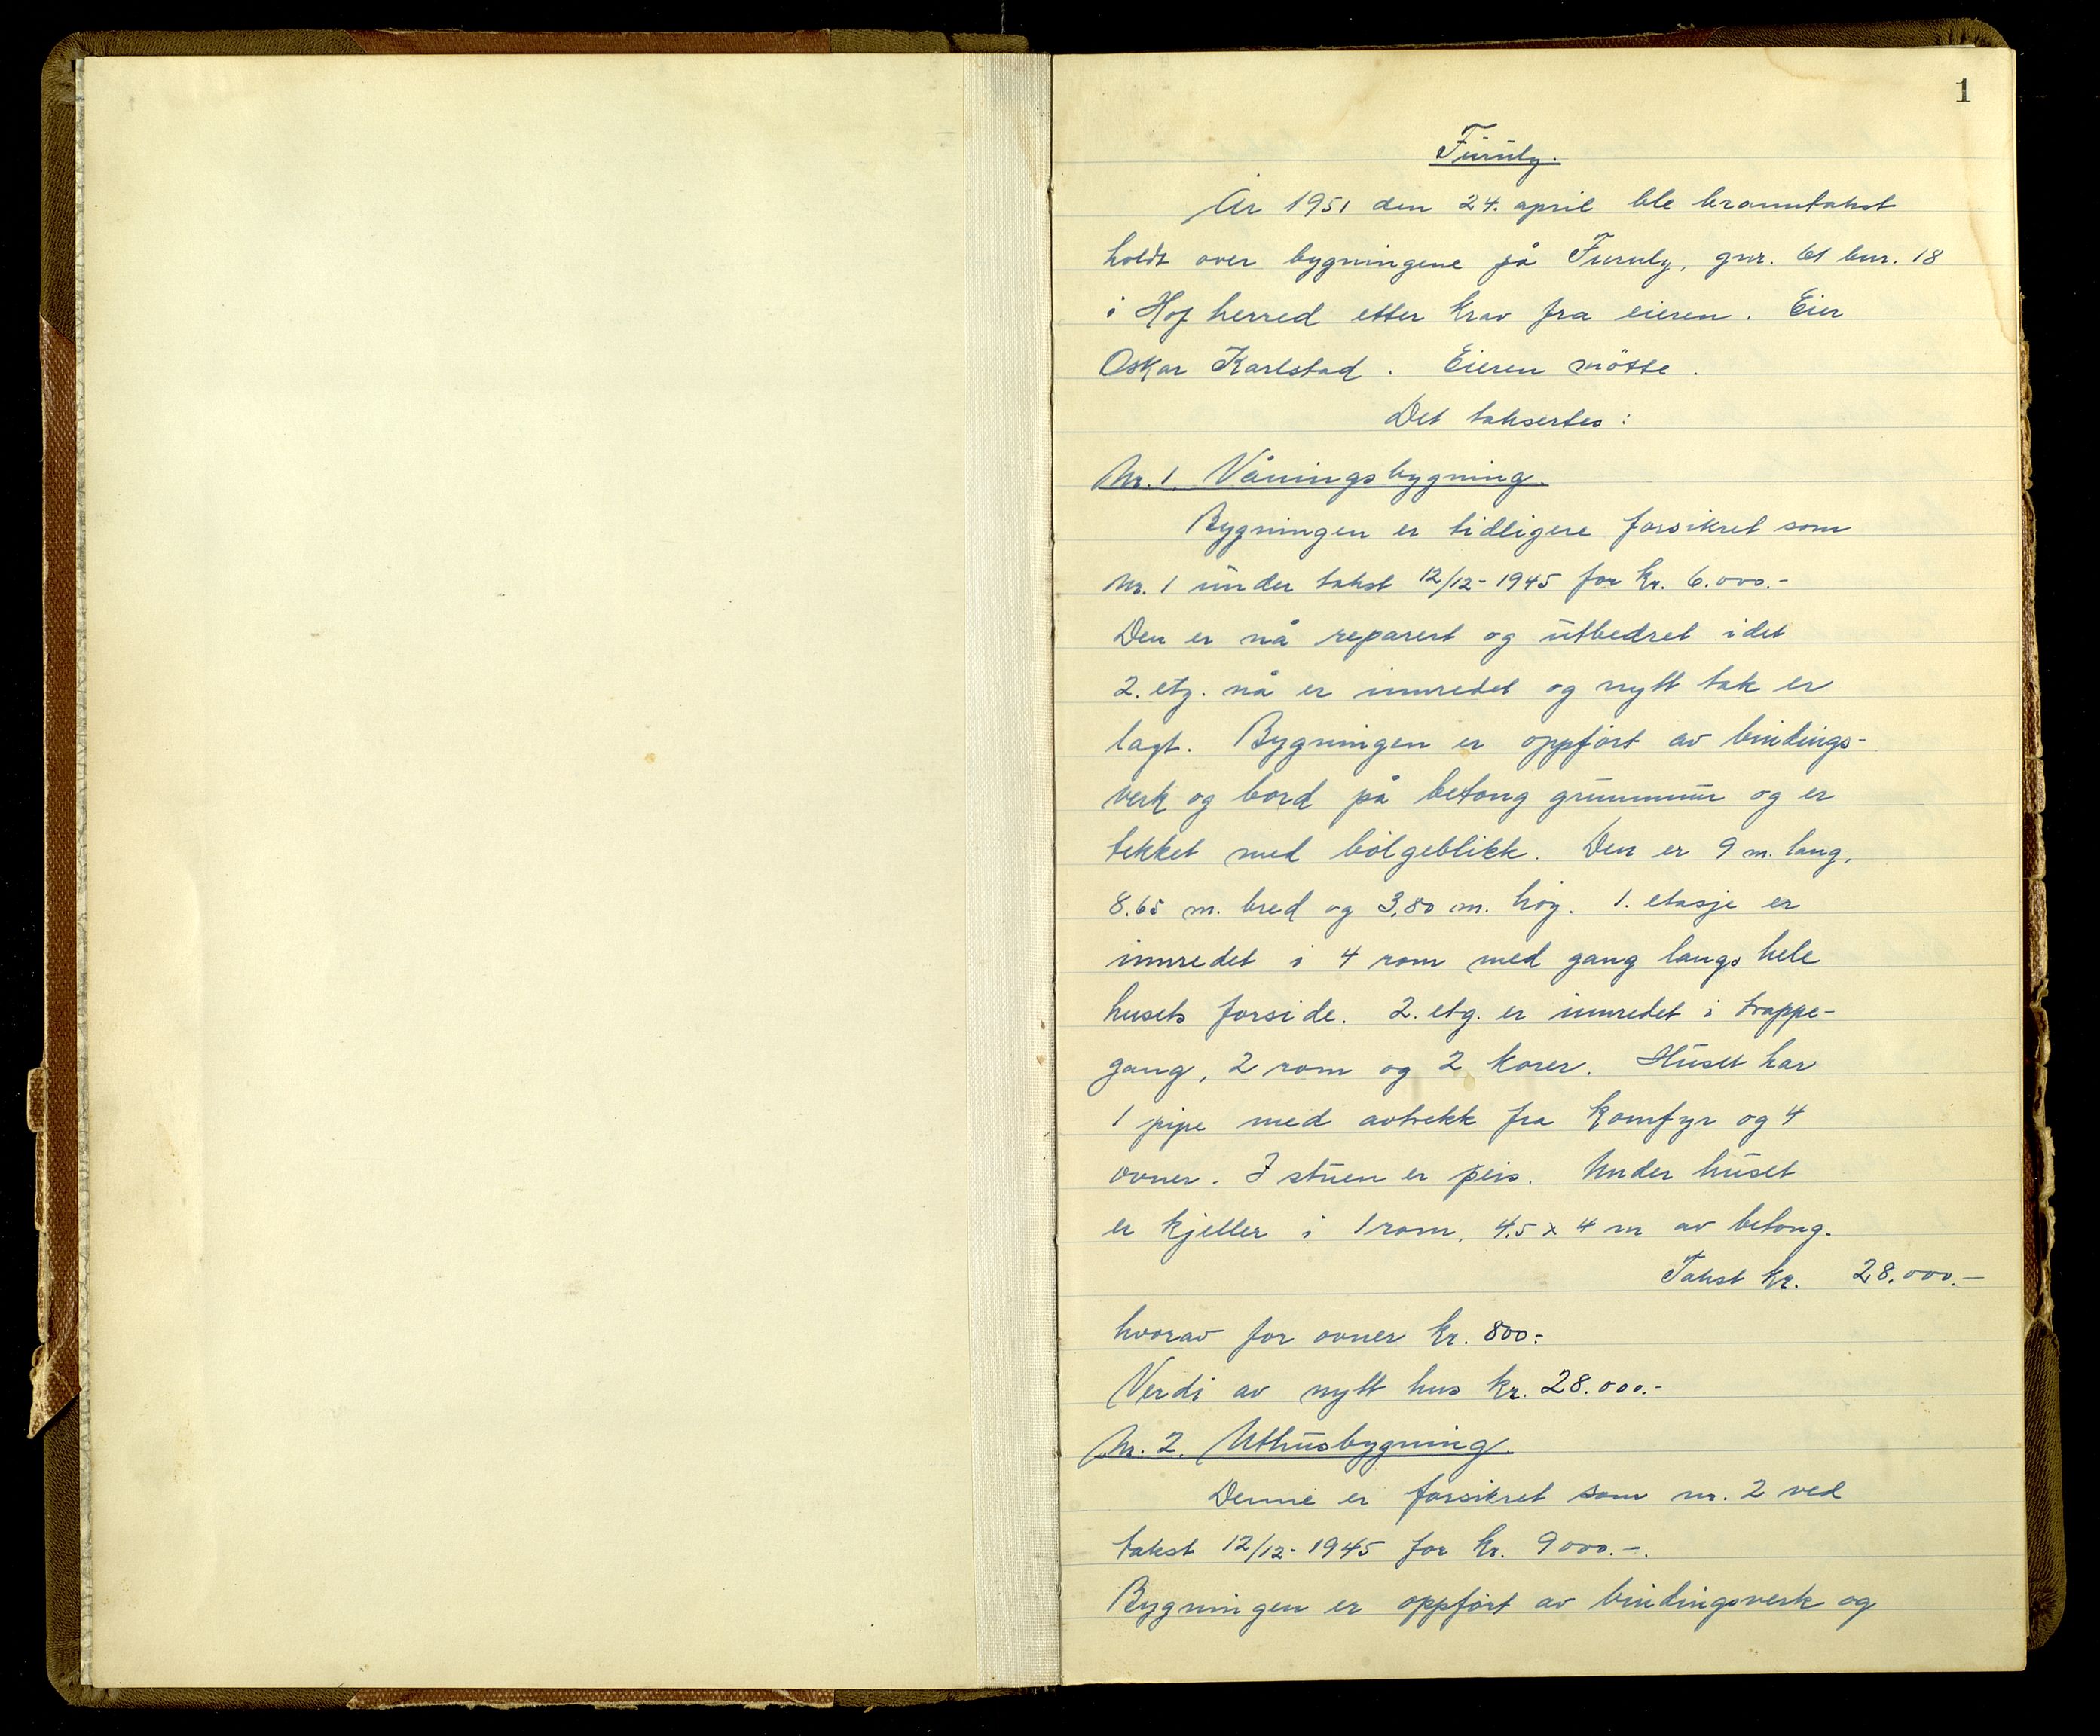 1
Furuly.
År 1951 den 24. april ble branntakst
holdt over bygningene på Furuly, gnr. 61 bnr. 18
i Hof herred etter krav fra eieren. Eier
Oskar Karlstad. Eieren møtte.
Det taksertes:
Nr. 1. Våningsbygning.
Bygningen er tidligere forsikret som
nr. 1 under takst 12/12-1945 for kr. 6.000.-
Den er nå reparert og utbedret idet
2. etg. nå er innredet og nytt tak er
lagt. Bygningen er oppført av bindings-
verk og bord på betong grunnmur og er
tekket med bølgeblikk. Den er 9 m. lang,
8.65 m. bred og 3,80 m. høy. 1. etasje er
innredet i 4 rom med gang langs hele
husets forside. 2. etg. er innredet i trappe-
gang, 2 rom og 2 kover. Huset har
1 pipe med avtrekk fra komfyr og 4
ovner. I stuen er peis. Under huset
er kjeller i 1 rom, 4.5 x 4 m av betong.
Takst kr. 28.000.-
hvorav for ovner kr. 800.-
Verdi av nytt hus kr. 28.000.-
Nr. 2. Uthusbygning.
Denne er forsikret som nr. 2 ved
takst 12/12-1945 for kr. 9000.-.
Bygningen er oppført av bindingsverk og